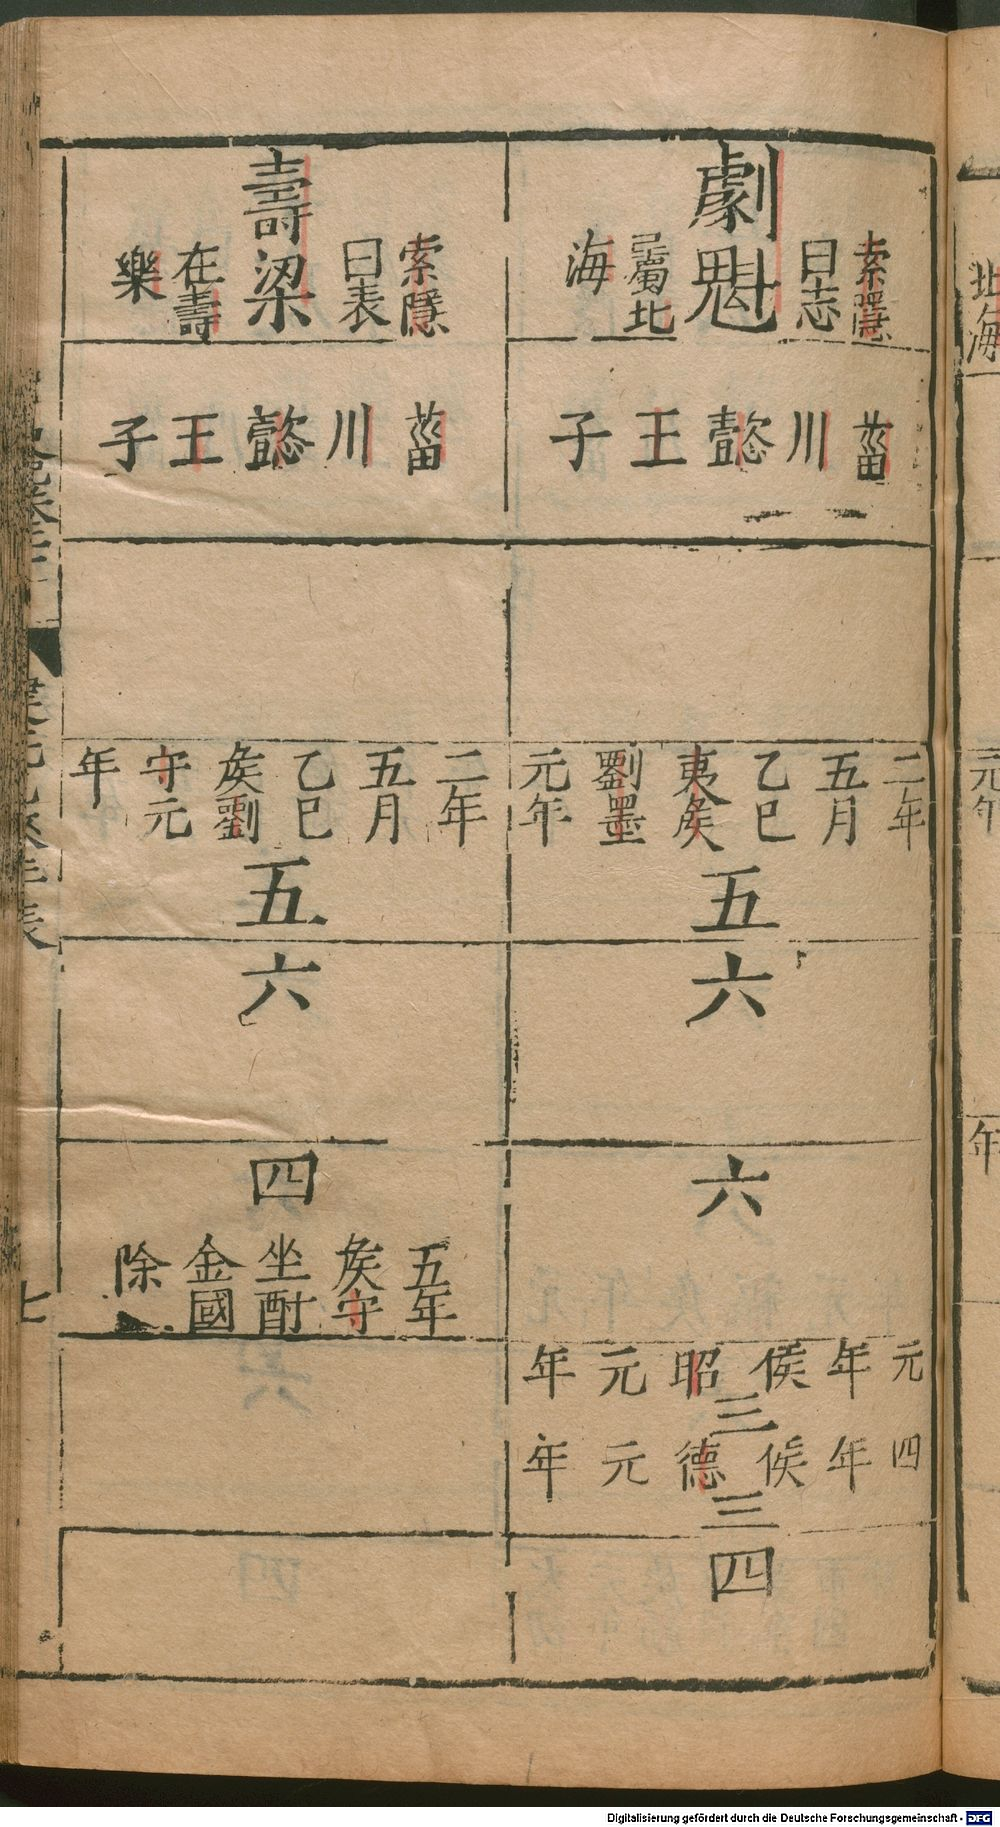 劇魁
索隱
曰志
屬北
海
菑川懿王子
二年
五月
乙巳
夷矦
劉墨
元年
五
六
六
元年侯昭元年
三
四年侯德元年
三
四
壽梁
索隱
曰表
在壽
樂
菑川懿王子
二年
五月
乙巳
矦劉
守元
年
五
六
四
五年
矦守
坐酎
金國
除
七
北海
元年
年
Digitalisierung gefördert durch die Deutsche Forschungsgemeinschaft - DFG